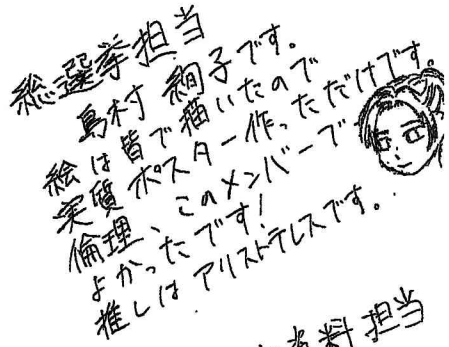 総選挙担当
島村 絢子です。
絵は皆で描いたので
実質ポスター作っただけです。
倫理、このメンバーで
よかったです!
推しはアリストテレスです。
料担当